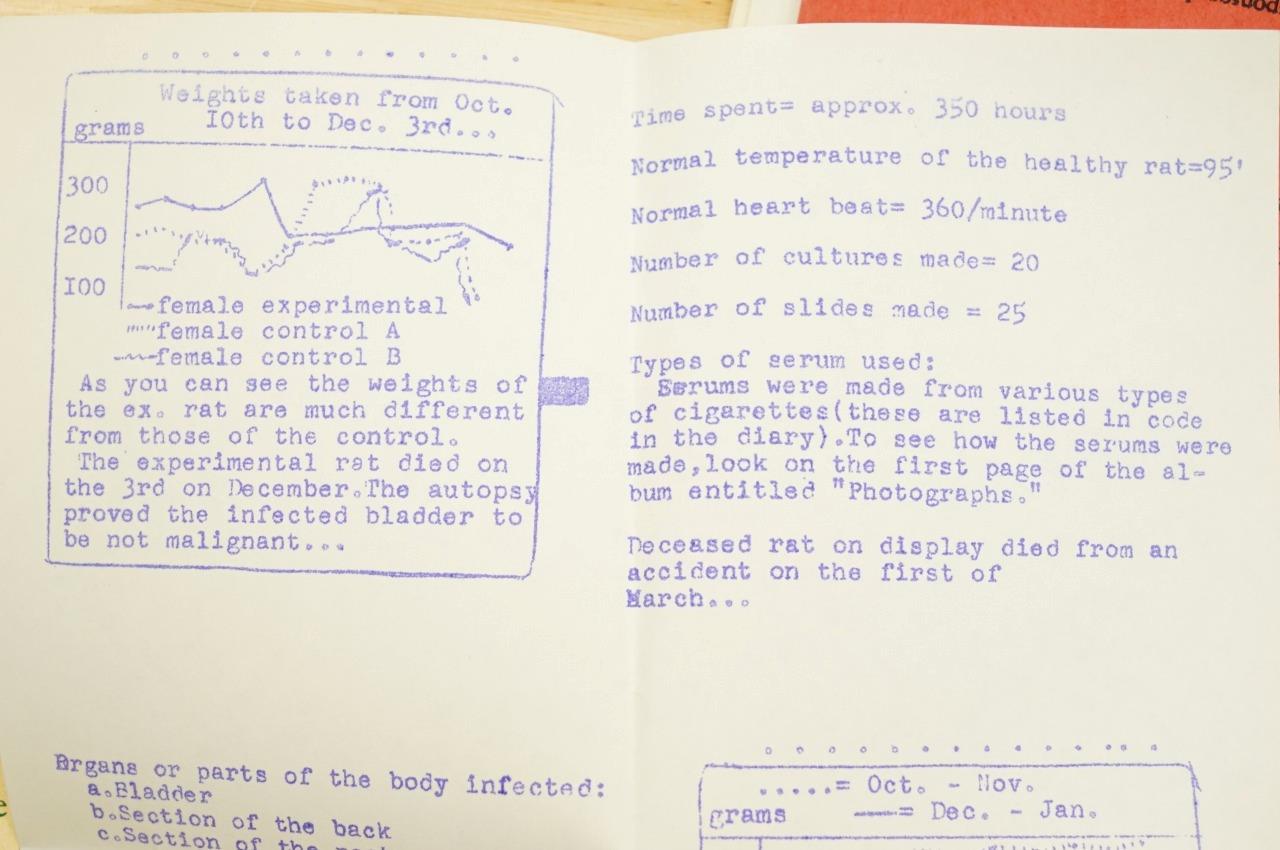 Weights taken from Oct.
IOth to Dec. 3rd...
grams
300
200
I00
female experimental
female control A
female control B
As you can see the weights of
the ex. rat are much different
from those of the control.
The experimental rat died on
the 3rd on December.The autopsy
proved the infected bladder to
be not malignant...
Organs or parts of the body infected:
a.Bladder
b.Section of the back
c.Section of the
Time spent= approx. 350 hours
Normal temperature of the healthy rat=95'
Normal heart beat= 360/minute
Number of cultures made= 20
Number of slides made = 25
Types of serum used:
Serums were made from various types
of cigarettes(these are listed in code
in the diary).To see how the serums were
made,look on the first page of the al-
bum entitled "Photographs."
Deceased rat on display died from an
accident on the first of
March...
.....= Oct. - Nov.
grams
——= Dec. - Jan.